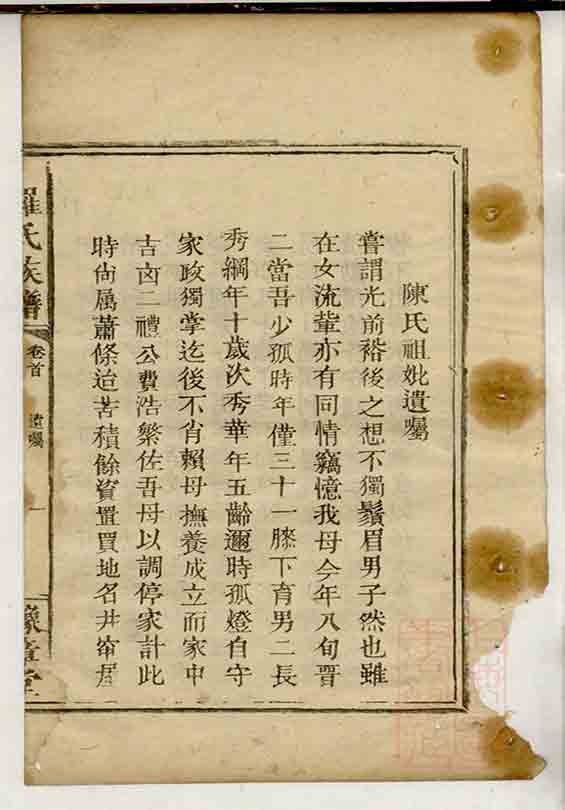 陳氏祖妣遺囑
嘗謂光前裕後之想不獨鬚眉男子然也雖
在女流輩亦有同情竊憶我母今年八旬晋
二當吾少孤時年僅三十一膝下育男二長
秀綱年十歲次秀華年五齡邇時孤燈自守
家政獨掌迄後不肖賴母撫養成立而家中
吉凶二禮公費浩繁佐吾母以調停家計此
時尙属蕭條迨苦積餘資置買地名井
羅氏族譜
卷首
遺囑
一
豫章堂